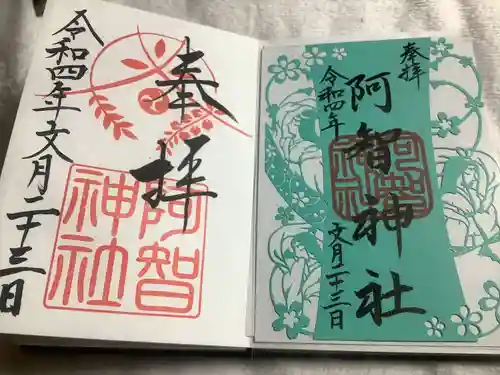 奉拝
阿智神社
令和四年文月二十三日
奉拝
阿智神社
阿智神社
令和四年
文月二十三日